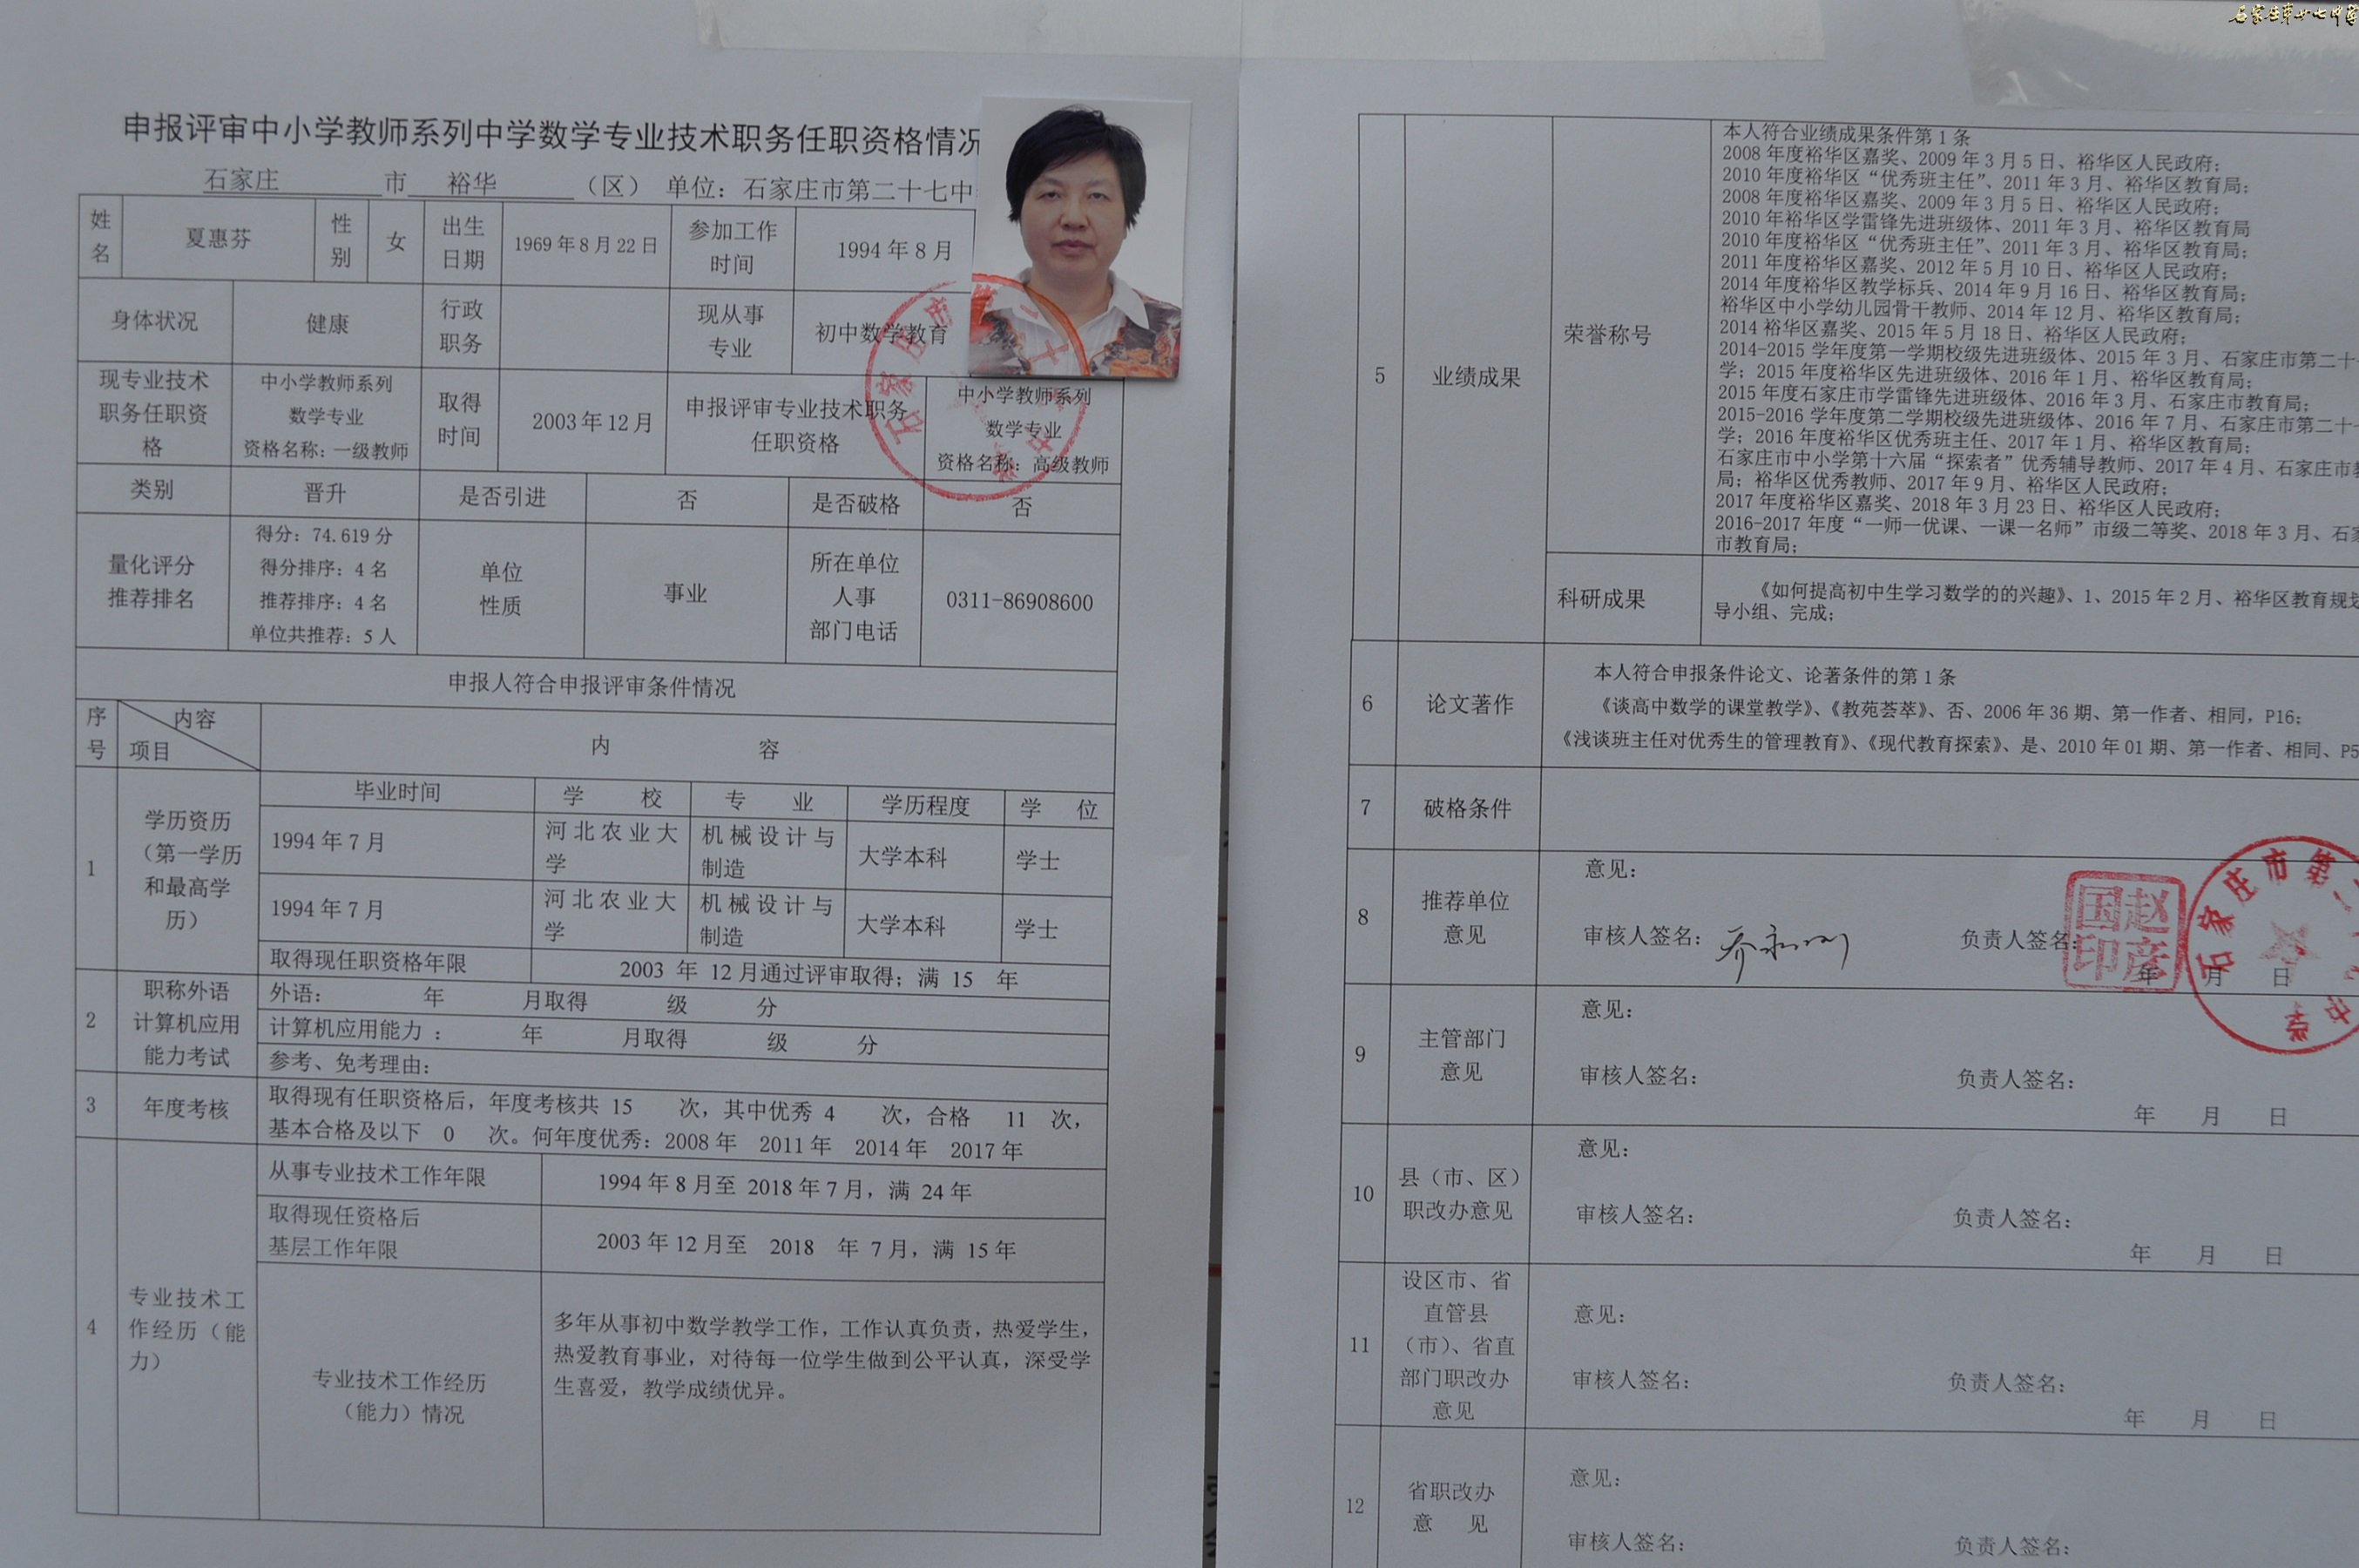 石家庄市廿七中学
申报评审中小学教师系列中学数学专业技术职务任职资格情况
石家庄 市 裕华 （区） 单位：石家庄市第二十七中
姓名 夏惠芬 性别 女 出生日期 1969年8月22日 参加工作时间 1994年8月
身体状况 健康 行政职务 现从事专业 初中数学教育
现专业技术职务任职资格 中小学教师系列 数学专业 资格名称：一级教师 取得时间 2003年12月 申报评审专业技术职务任职资格 中小学教师系列 数学专业 资格名称：高级教师
类别 晋升 是否引进 否 是否破格 否
量化评分推荐排名 得分：74.619分 得分排序：4名 推荐排序：4名 单位共推荐：5人 单位性质 事业 所在单位人事部门电话 0311-86908600
申报人符合申报评审条件情况
序号 内容 项目 内 容
1 学历资历（第一学历和最高学历） 毕业时间 学 校 专 业 学历程度 学 位
1994年7月 河北农业大学 机械设计与制造 大学本科 学士
1994年7月 河北农业大学 机械设计与制造 大学本科 学士
取得现任职资格年限 2003 年 12月通过评审取得；满 15 年
2 职称外语计算机应用能力考试 外语： 年 月取得 级 分
计算机应用能力： 年 月取得 级 分
参考、免考理由：
3 年度考核 取得现有任职资格后，年度考核共 15 次，其中优秀 4 次，合格 11 次，
基本合格及以下 0 次。何年度优秀：2008年 2011年 2014年 2017年
4 专业技术工作经历（能力） 从事专业技术工作年限 1994年8月至 2018年7月，满 24年
取得现任资格后基层工作年限 2003年12月至 2018 年 7月，满 15年
专业技术工作经历（能力）情况
多年从事初中数学教学工作，工作认真负责，热爱学生，
热爱教育事业，对待每一位学生做到公平认真，深受学
生喜爱，教学成绩优异。
5 业绩成果 荣誉称号
本人符合业绩成果条件第1条
2008年度裕华区嘉奖、2009年3月5日、裕华区人民政府；
2010年度裕华区“优秀班主任”、2011年3月、裕华区教育局；
2008年度裕华区嘉奖、2009年3月5日、裕华区人民政府；
2010年裕华区学雷锋先进班级体、2011年3月、裕华区教育局
2010年度裕华区“优秀班主任”、2011年3月、裕华区教育局；
2011年度裕华区嘉奖、2012年5月10日、裕华区人民政府；
2014年度裕华区教学标兵、2014年9月16日、裕华区教育局；
裕华区中小学幼儿园骨干教师、2014年12月、裕华区教育局；
2014裕华区嘉奖、2015年5月18日、裕华区人民政府；
2014-2015学年度第一学期校级先进班级体、2015年3月、石家庄市第二十
学；2015年度裕华区先进班级体、2016年1月、裕华区教育局；
2015年度石家庄市学雷锋先进班级体、2016年3月、石家庄市教育局；
2015-2016学年度第二学期校级先进班级体、2016年7月、石家庄市第二十
学；2016年度裕华区优秀班主任、2017年1月、裕华区教育局；
石家庄市中小学第十六届“探索者”优秀辅导教师、2017年4月、石家庄市教
局；裕华区优秀教师、2017年9月、裕华区人民政府；
2017年度裕华区嘉奖、2018年3月23日、裕华区人民政府；
2016-2017年度“一师一优课、一课一名师”市级二等奖、2018年3月、石家
市教育局；
科研成果 《如何提高初中生学习数学的的兴趣》、1、2015年2月、裕华区教育规划
导小组、完成；
6 论文著作 本人符合申报条件论文、论著条件的第1条
《谈高中数学的课堂教学》、《教苑荟萃》、否、2006年36期、第一作者、相同，P16；
《浅谈班主任对优秀生的管理教育》、《现代教育探索》、是、2010年01期、第一作者、相同、P5
7 破格条件
8 推荐单位意见 意见：
审核人签名： 负责人签名：
赵彦国印
年 月 日
石家庄市第二十七中学
9 主管部门意见 意见：
审核人签名： 负责人签名：
年 月 日
10 县（市、区）职改办意见 意见：
审核人签名： 负责人签名：
年 月 日
11 设区市、省直管县（市）、省直部门职改办意见 意见：
审核人签名： 负责人签名：
年 月 日
12 省职改办意 见 意见：
审核人签名： 负责人签名：